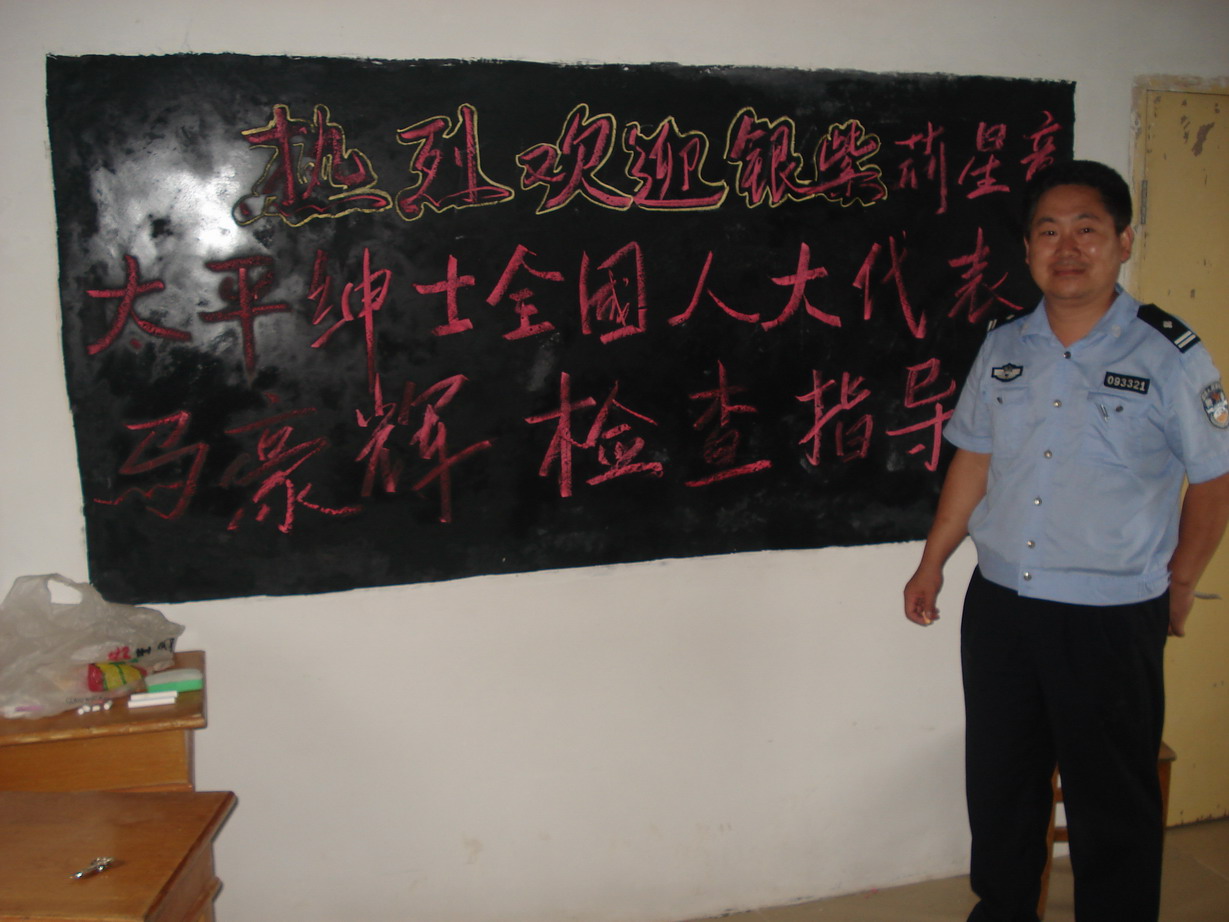 热烈欢迎银柴荊星意
太平绅士全國人大代表
马豪辉 检查指导
093321